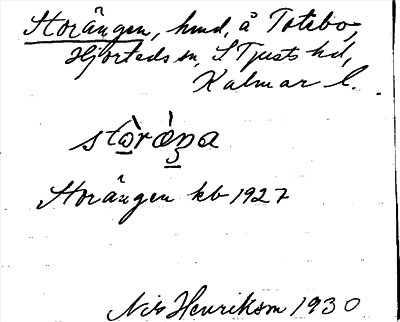 Storängen, hmd, å Totebo,
Hjorteds sn, S Tjusts hd,
Kalmar l.
stὼrάŋa
Storängen kb 1927
Nils Henrikson 1930